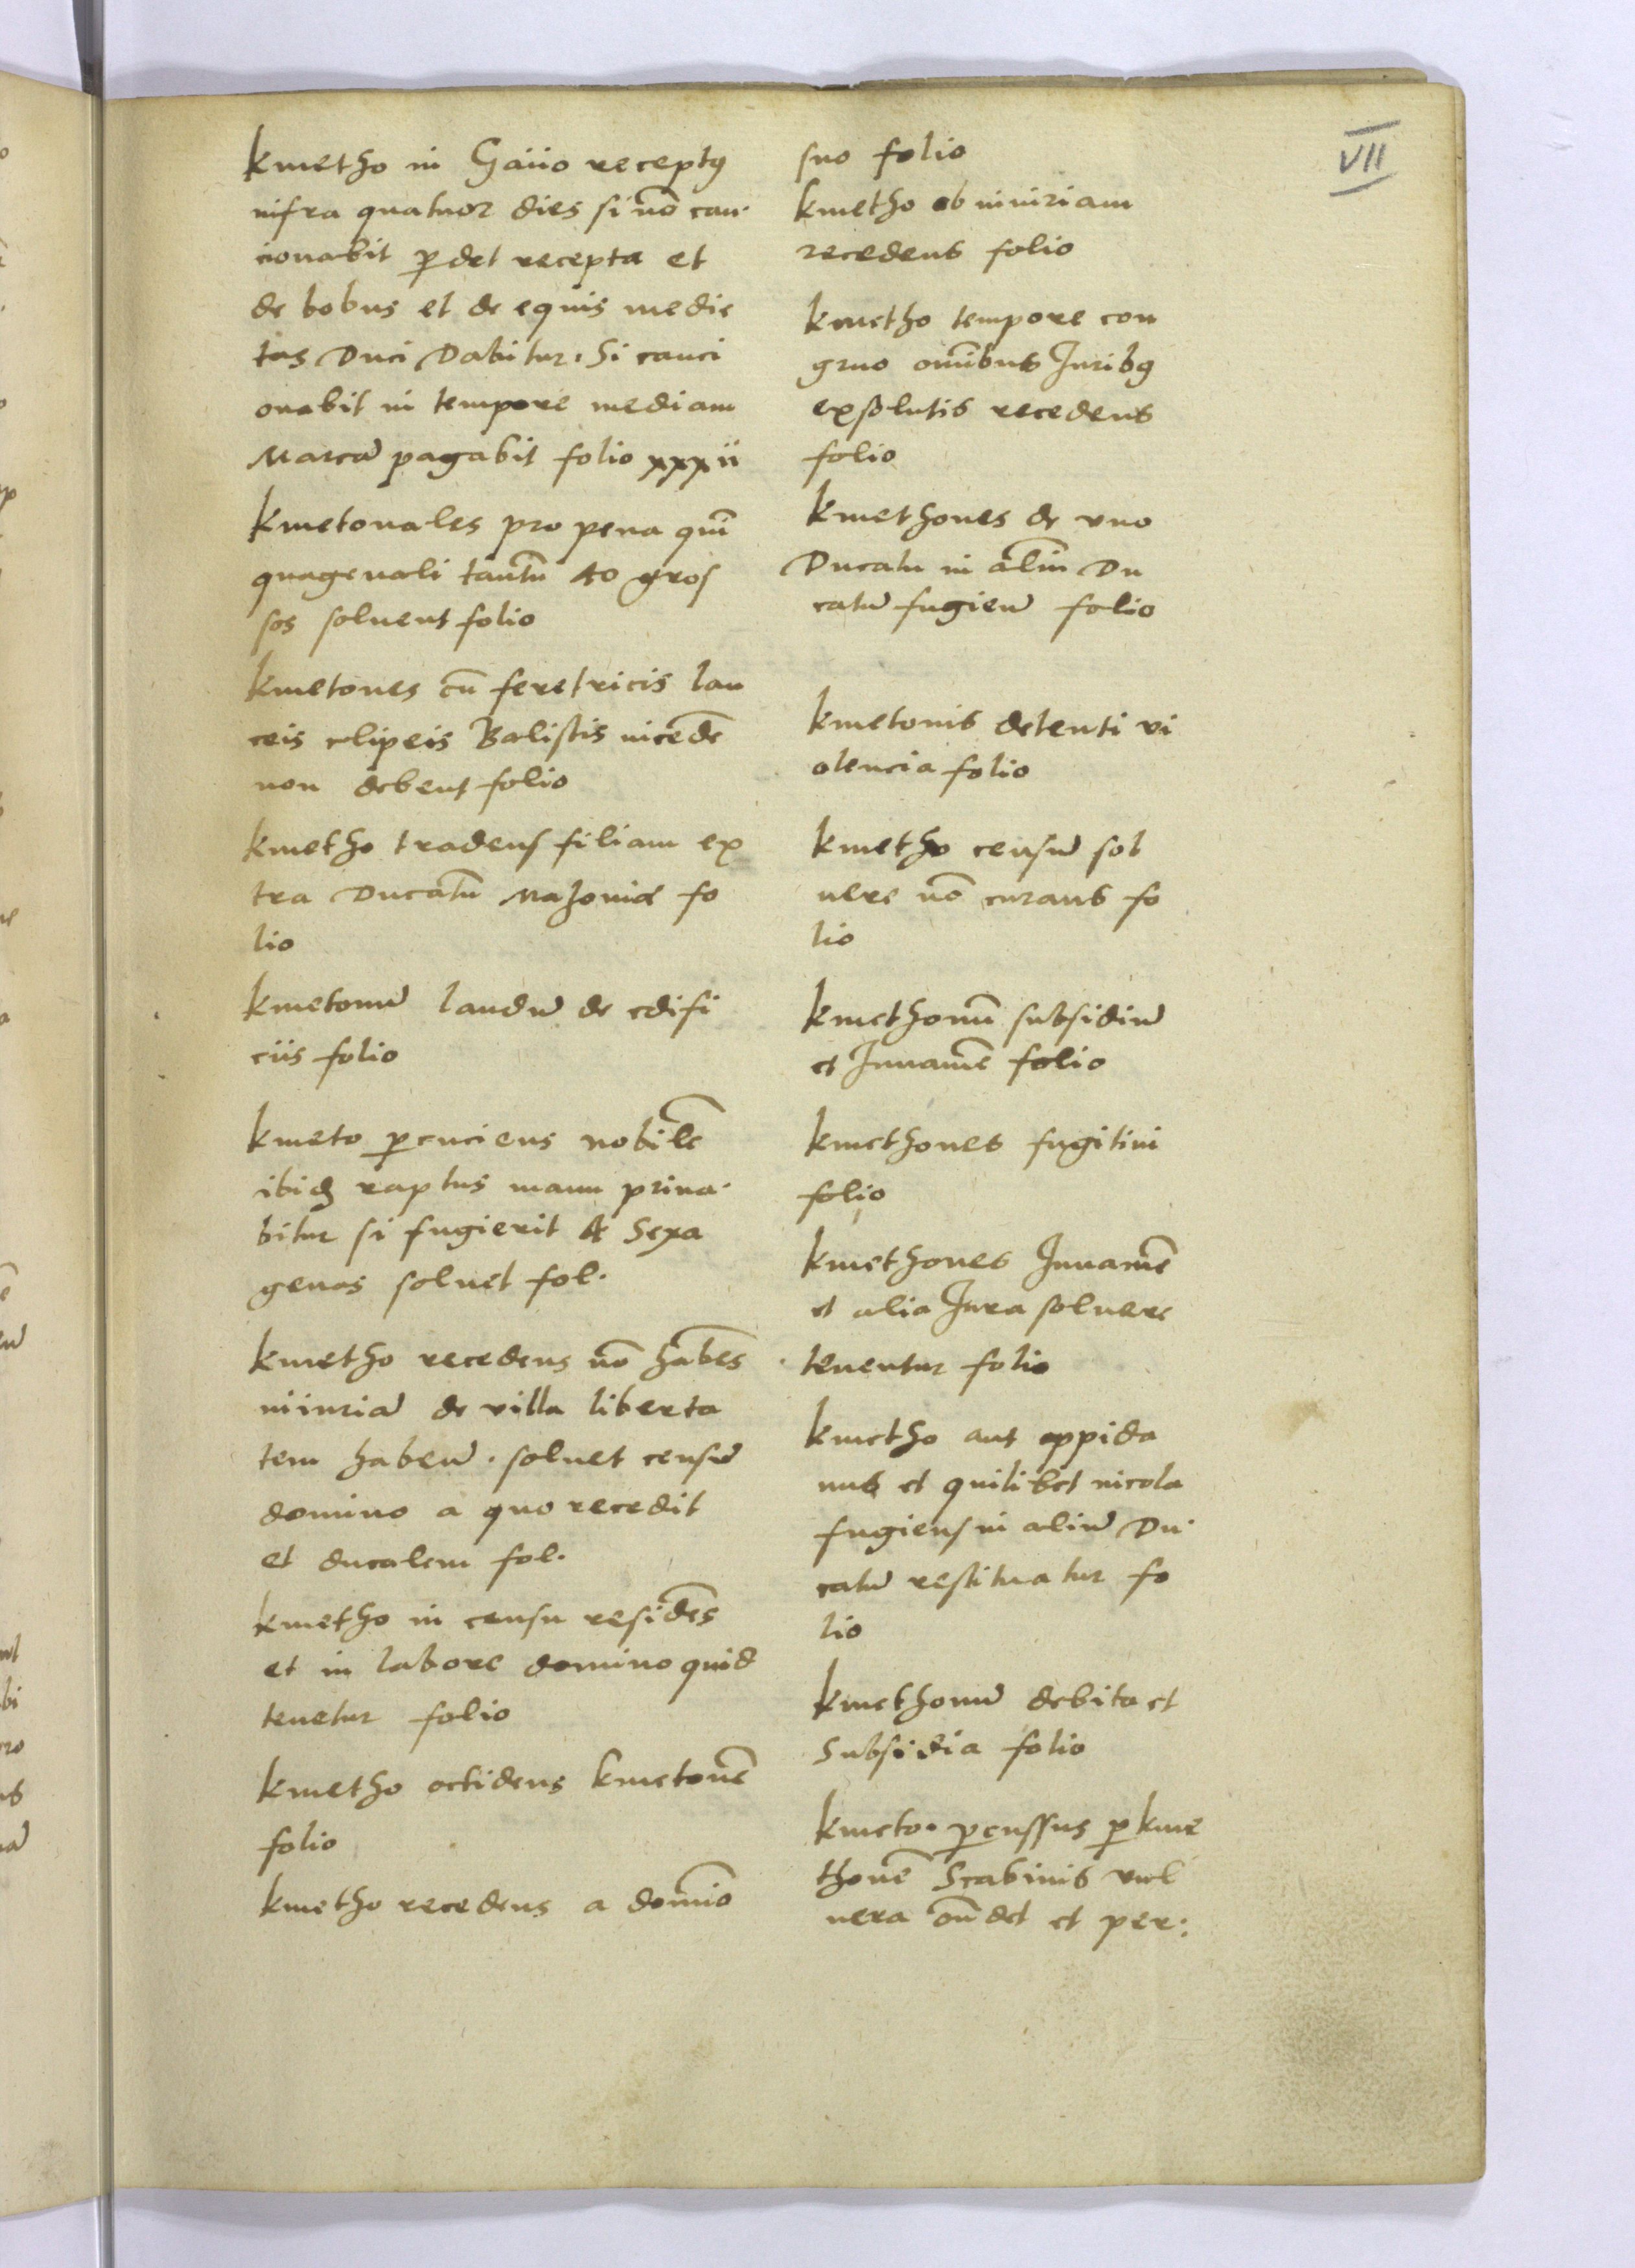 VII
kmetho in Gaiio receptꝯ
infra quatuor dies si nō cau·
cionabit ꝑdet recepta et
de bobus et de equis medie
tas Duci Dabitur. Si cauci
onabit in tempore mediam
Marcā pagabit folio xxxii
kmetonales pro pena quī
quagenali tantū 40 gros
sos soluent folio
kmetones cū feretricis lan
ceis clipeis Balistis incedē
non debent folio
kmetho tradens filiam ex
tra Ducatū Mazouie fo
lio
kmetonū laudū de edifi
ciis folio
kmeto ꝑcuciens nobilē
ibidē raptus manu priua·
bitur si fugierit 4 Sexa
genas soluet fol.
kmetho recedens nō habēs
iniuriā de villa liberta
tem haben̄. soluet censū
domino a quo recedit
et ducalem fol.
kmetho in censu residēs
et in labore domino quid
tenetur folio
kmetho occidens kmetonē
folio
kmetho recedens a domīo
suo folio
kmetho ob iniuriam
recedens folio
kmetho tempore con
gruo omībus Juribꝯ
exsolutis recedens
folio
kmethones de vno
Ducatu in aliū Du
catū fugien̄ folio
kmetonis detenti vi
olencia folio
kmetho censū sol
uere nō curans fo
lio
kmethonū subsidiū
et Juuamē folio
kmethones fugitiui
folio
kmethones Juuamē
et alia Jura soluere
tenentur folio
kmetho aut oppida
nus et quilibet incola
fugiens in aliū Du·
catū restituatur fo
lio
kmethonū debita et
Subsidia folio
kmeto. ꝑcussus ꝑ kme
thonē Scabinis vul
nera on̄det et per: